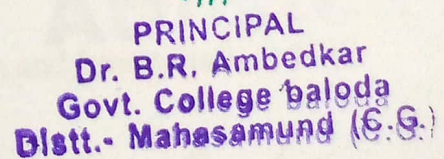 PRINCIPAL
Dr. B.R. Ambedkar
Govt. College baloda
Distt.- Mahasamund (C.G.)